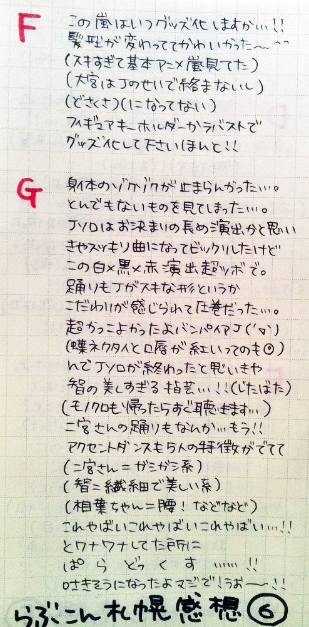 F
この嵐はいつグッズ化しますか…!!
髪型が変わっててかわいかった〜^^
(スキすぎて基本アニメ嵐見てた)
(大宮はJのせいで絡まないし)
(どさくさ)(になってない)
フィギュアキーホルダーかラバストで
グッズ化して下さいほんと!!
G
身体のゾクゾクが止まらんかった…。
とんでもないものを見てしまった…。
Jソロはお決まりの長め演出かと思い
きやスッキリ曲になってビックリしたけど
この白×黒×赤演出超ツボで。
踊りもJがスキな形というか
こだわりが感じられて圧巻だった…。
超かっこよかったよバンパイアJ('▽')
(蝶ネクタイと口唇が紅いってのも◎)
んでJソロが終わったと思いきや
智の美しすぎる指芸…!!(じたばた)
(モノクロも帰ったらすぐ聴きます…)
二宮さんの踊りもなんか…もう!!
アクセントダンスも5人の特徴がでてて
(二宮さん=ガシガシ系)
(智=繊細で美しい系)
(相葉ちゃん=腰!などなど)
これやばいこれやばいこれやばい…!!
とワナワナしてた所に
ぱ ら ど っ く す ……!!
叫きそうになったよマジで!うお〜!!
らぶこん札幌感想⑥